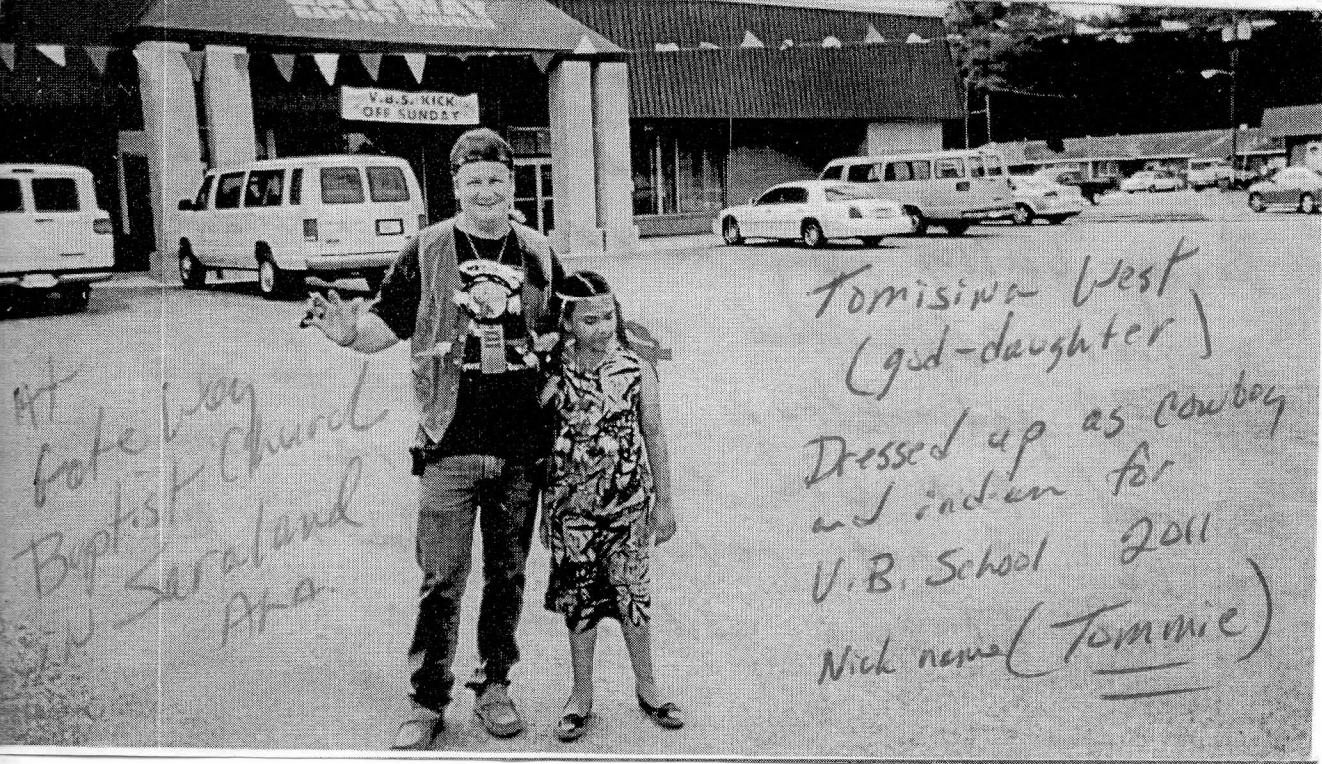 GATEWAY
BAPTIST CHURCH
V.B.S. KICK
OFF SUNDAY
At
Gate Way
Baptist Church
in Saraland
ALA.
Tomisina West
(god-daughter)
Dressed up as cowboy
and indian for
V.B. School 2011
Nick name (Tommie)